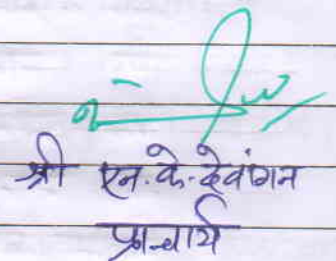 श्री एन.के.देवांगन
प्राचार्य